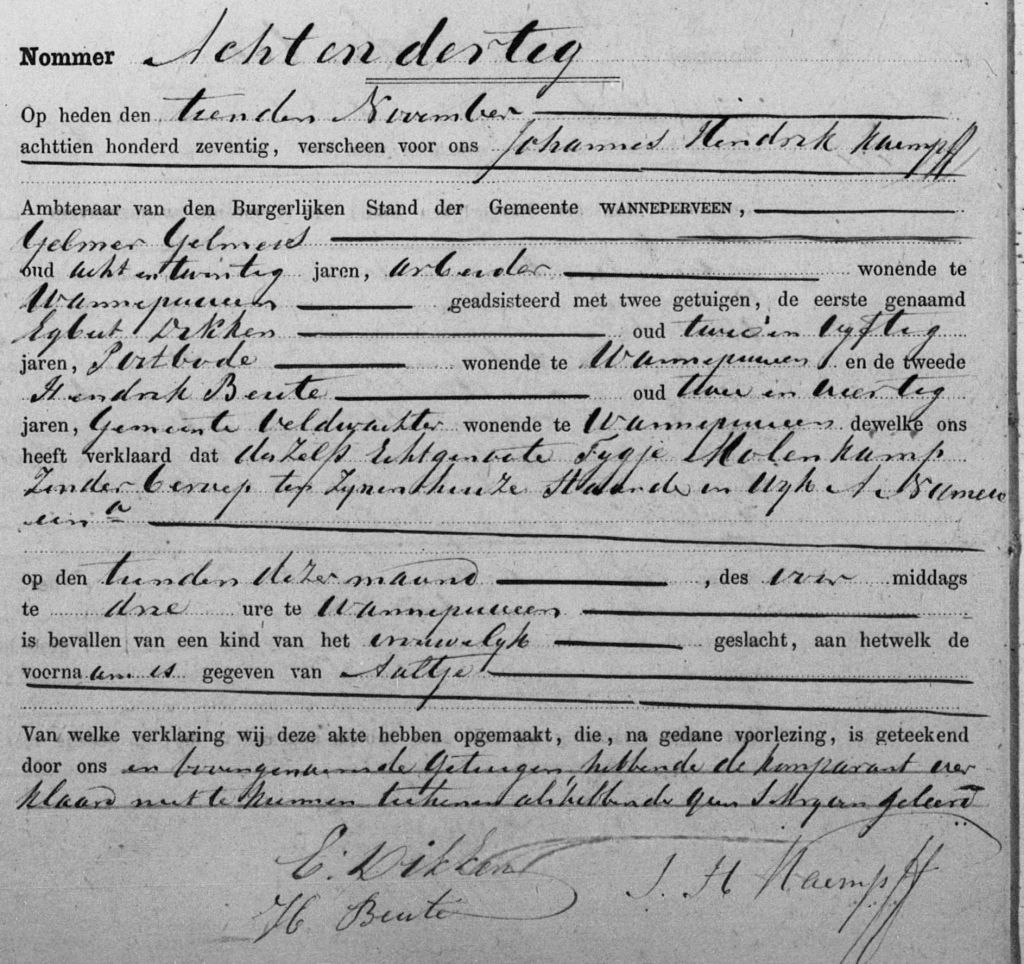 Nommer Achtendertig
Op heden den tienden November
achttien honderd zeventig, verscheen voor ons Johannes Hendrik Kaempff
Ambtenaar van den Burgerlijken Stand der Gemeente WANNEPERVEEN,
Gelmer Gelmers
oud acht en twintig jaren, arbeider wonende te
Wanneperveen geadsisteerd met twee getuigen, de eerste genaamd
Egbert Dikken oud twee en vyftig
jaren, Postbode wonende te Wanneperveen en de tweede
Hendrik Beute oud twee en veertig
jaren, Gemeente Veldwachter wonende te Wanneperveen dewelke ons
heeft verklaard dat deszelfs Echtgenoote Fygje Molenkamp
Zonder beroep ten Zynen huize Staande in Wyk A Numero
een a
op den tienden dezer maand, des voor middags
te drie ure te Wanneperveen
is bevallen van een kind van het vrouwelyk geslacht, aan hetwelk de
voornaam is gegeven van Aaltje
Van welke verklaring wij deze akte hebben opgemaakt, die, na gedane voorlezing, is geteekend
door ons en bovengenoemde Getuigen, hebbende de komparant ver
klaard niet te kunnen teekenen als hebbende geen Schryven geleerd
E. Dikken
J. H Kaempff
H. Beute